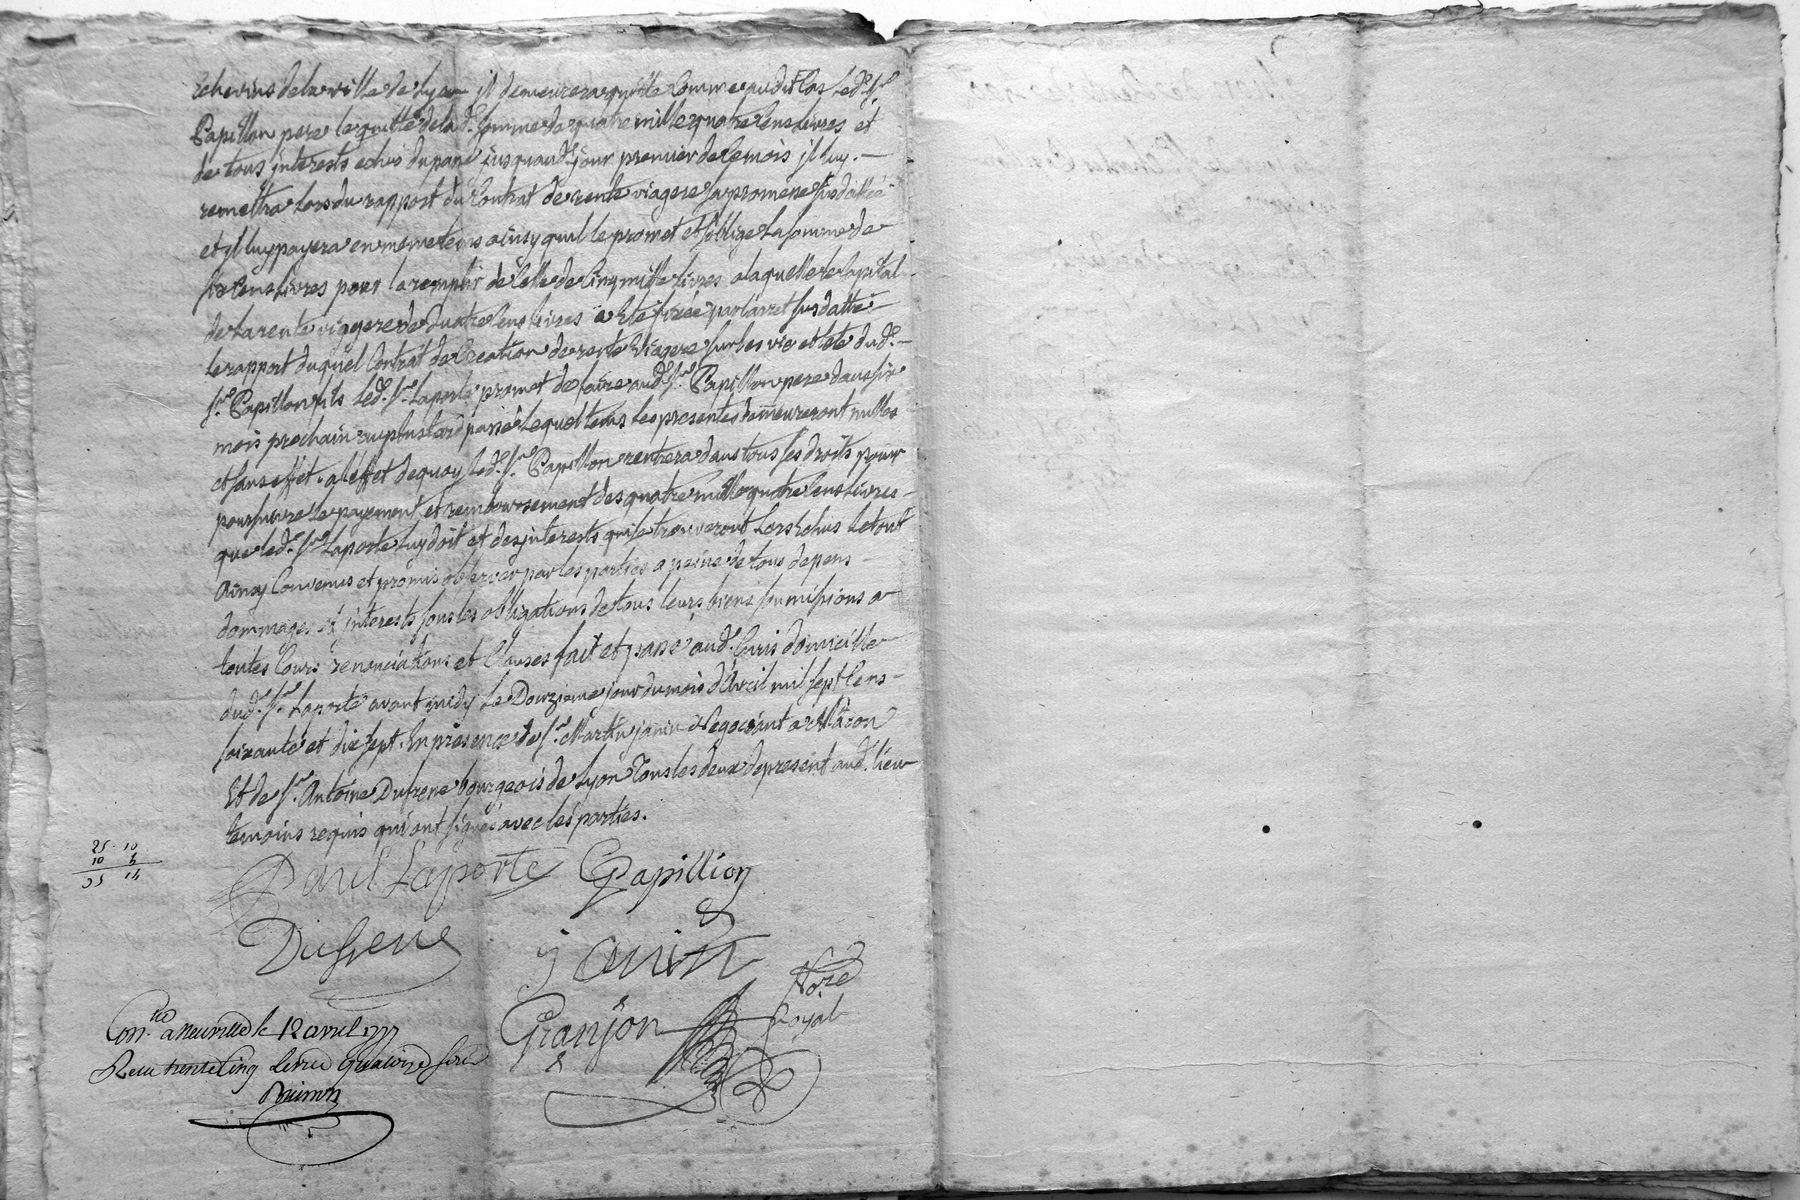 echevins de la ville de Lyon il demeurera quitte comme audit cas led. Sr.
Papillon pere le quitte de lad. somme de quatre mille quatre cens livres et
de tous jnterests echus du passé jusqu'aud. jour premier de ce mois jl luy
remettra lors du rapport du contrat de rente viagere sa promesse susdattée
et jl luy payera en meme tems ainsy qu'il le promet et s'oblige la somme de
six cens livres pour la remplir de celle de cinq mille livres a laquelle le capital
de la rente viagere de quatre cens livres a eté fixée par l'arret susdatté
le rapport duquel contrat de creation de rente viagere sur les vie et tete dud.
Sr. Papillon fils led. Sr. Laporte promet de faire aud. Sr. Papillon pere dans six
mois prochain au plus tard passé lequel tems les presentes demeureront nulles
et sans effet. a l'effet de quoy led. Sr. Papillon rentrera dans tous ses droits pour
poursuivre le payement et remboursement des quatre mille quatre cens livres
que led. Sr. Laporte luy doit et des jnterests qui se trouveront lors echus le tout
ainsy convenus et promis observer par les parties a peine de tous depens
dommages et jnterests sous les obligations de tous leurs biens soumissions a
toutes cours renonciations et clauses fait et passé aud. Curis domicille
dud. Sr. Laporte avant midy le Douzieme jour du mois d'Avril mil sept cens
soixante et dix sept. En presence de Sr. Martin janin Negociant a Mâcon
Et de Sr. Antoine Dufrene bourgeois de Lyon Tous les deux de present aud. lieu
temoins requis qui ont signés avec les parties.
25. 10
10 4
35 14
Paul Laporte Papillion
Dufrene
janin
Nore
Granjon Royal
Con.lle a Neuville le 12 avril 1777
Recu trente cinq livres quatorze sous